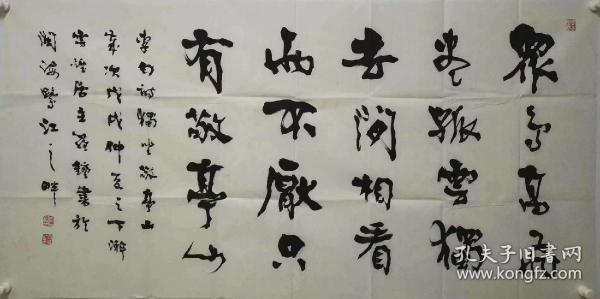 眾鳥高飛
盡孤雲獨
去閒相看
兩不厭只
有敬亭山
李白詩獨坐敬亭山
歲次戊戌仲夏之下澣
居主於
閩海鷺江之畔
孔夫子旧书网
www.kongfz.com